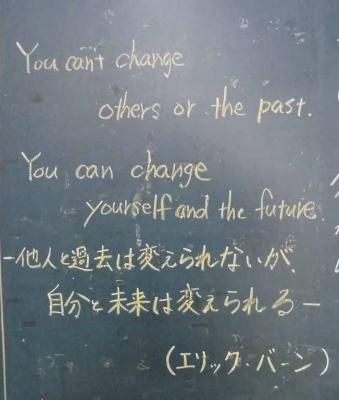 You can't change
others or the past.
You can change
yourself and the future.
-他人と過去は変えられないが、
自分と未来は変えられる-
(エリック・バーン)